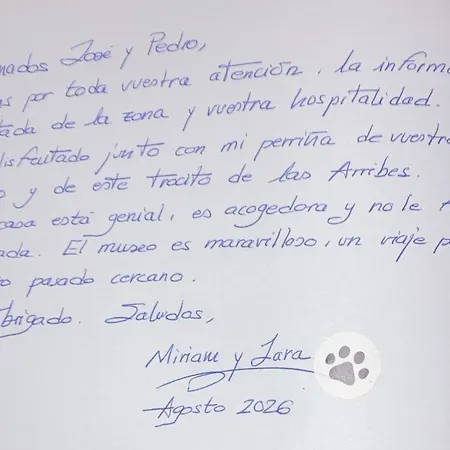 mados José y Pedro,
s por toda vuestra atención, la inform
ada de la zona y vuestra hospitalidad.
disfrutado junto con mi perriña de vuestro
o y de este trocito de las Arribes.
casa está genial, es acogedora y no le
ada. El museo es maravilloso, un viaje p
o pasado cercano.
brigado. Saludos,
Miriam y Lara
Agosto 2026